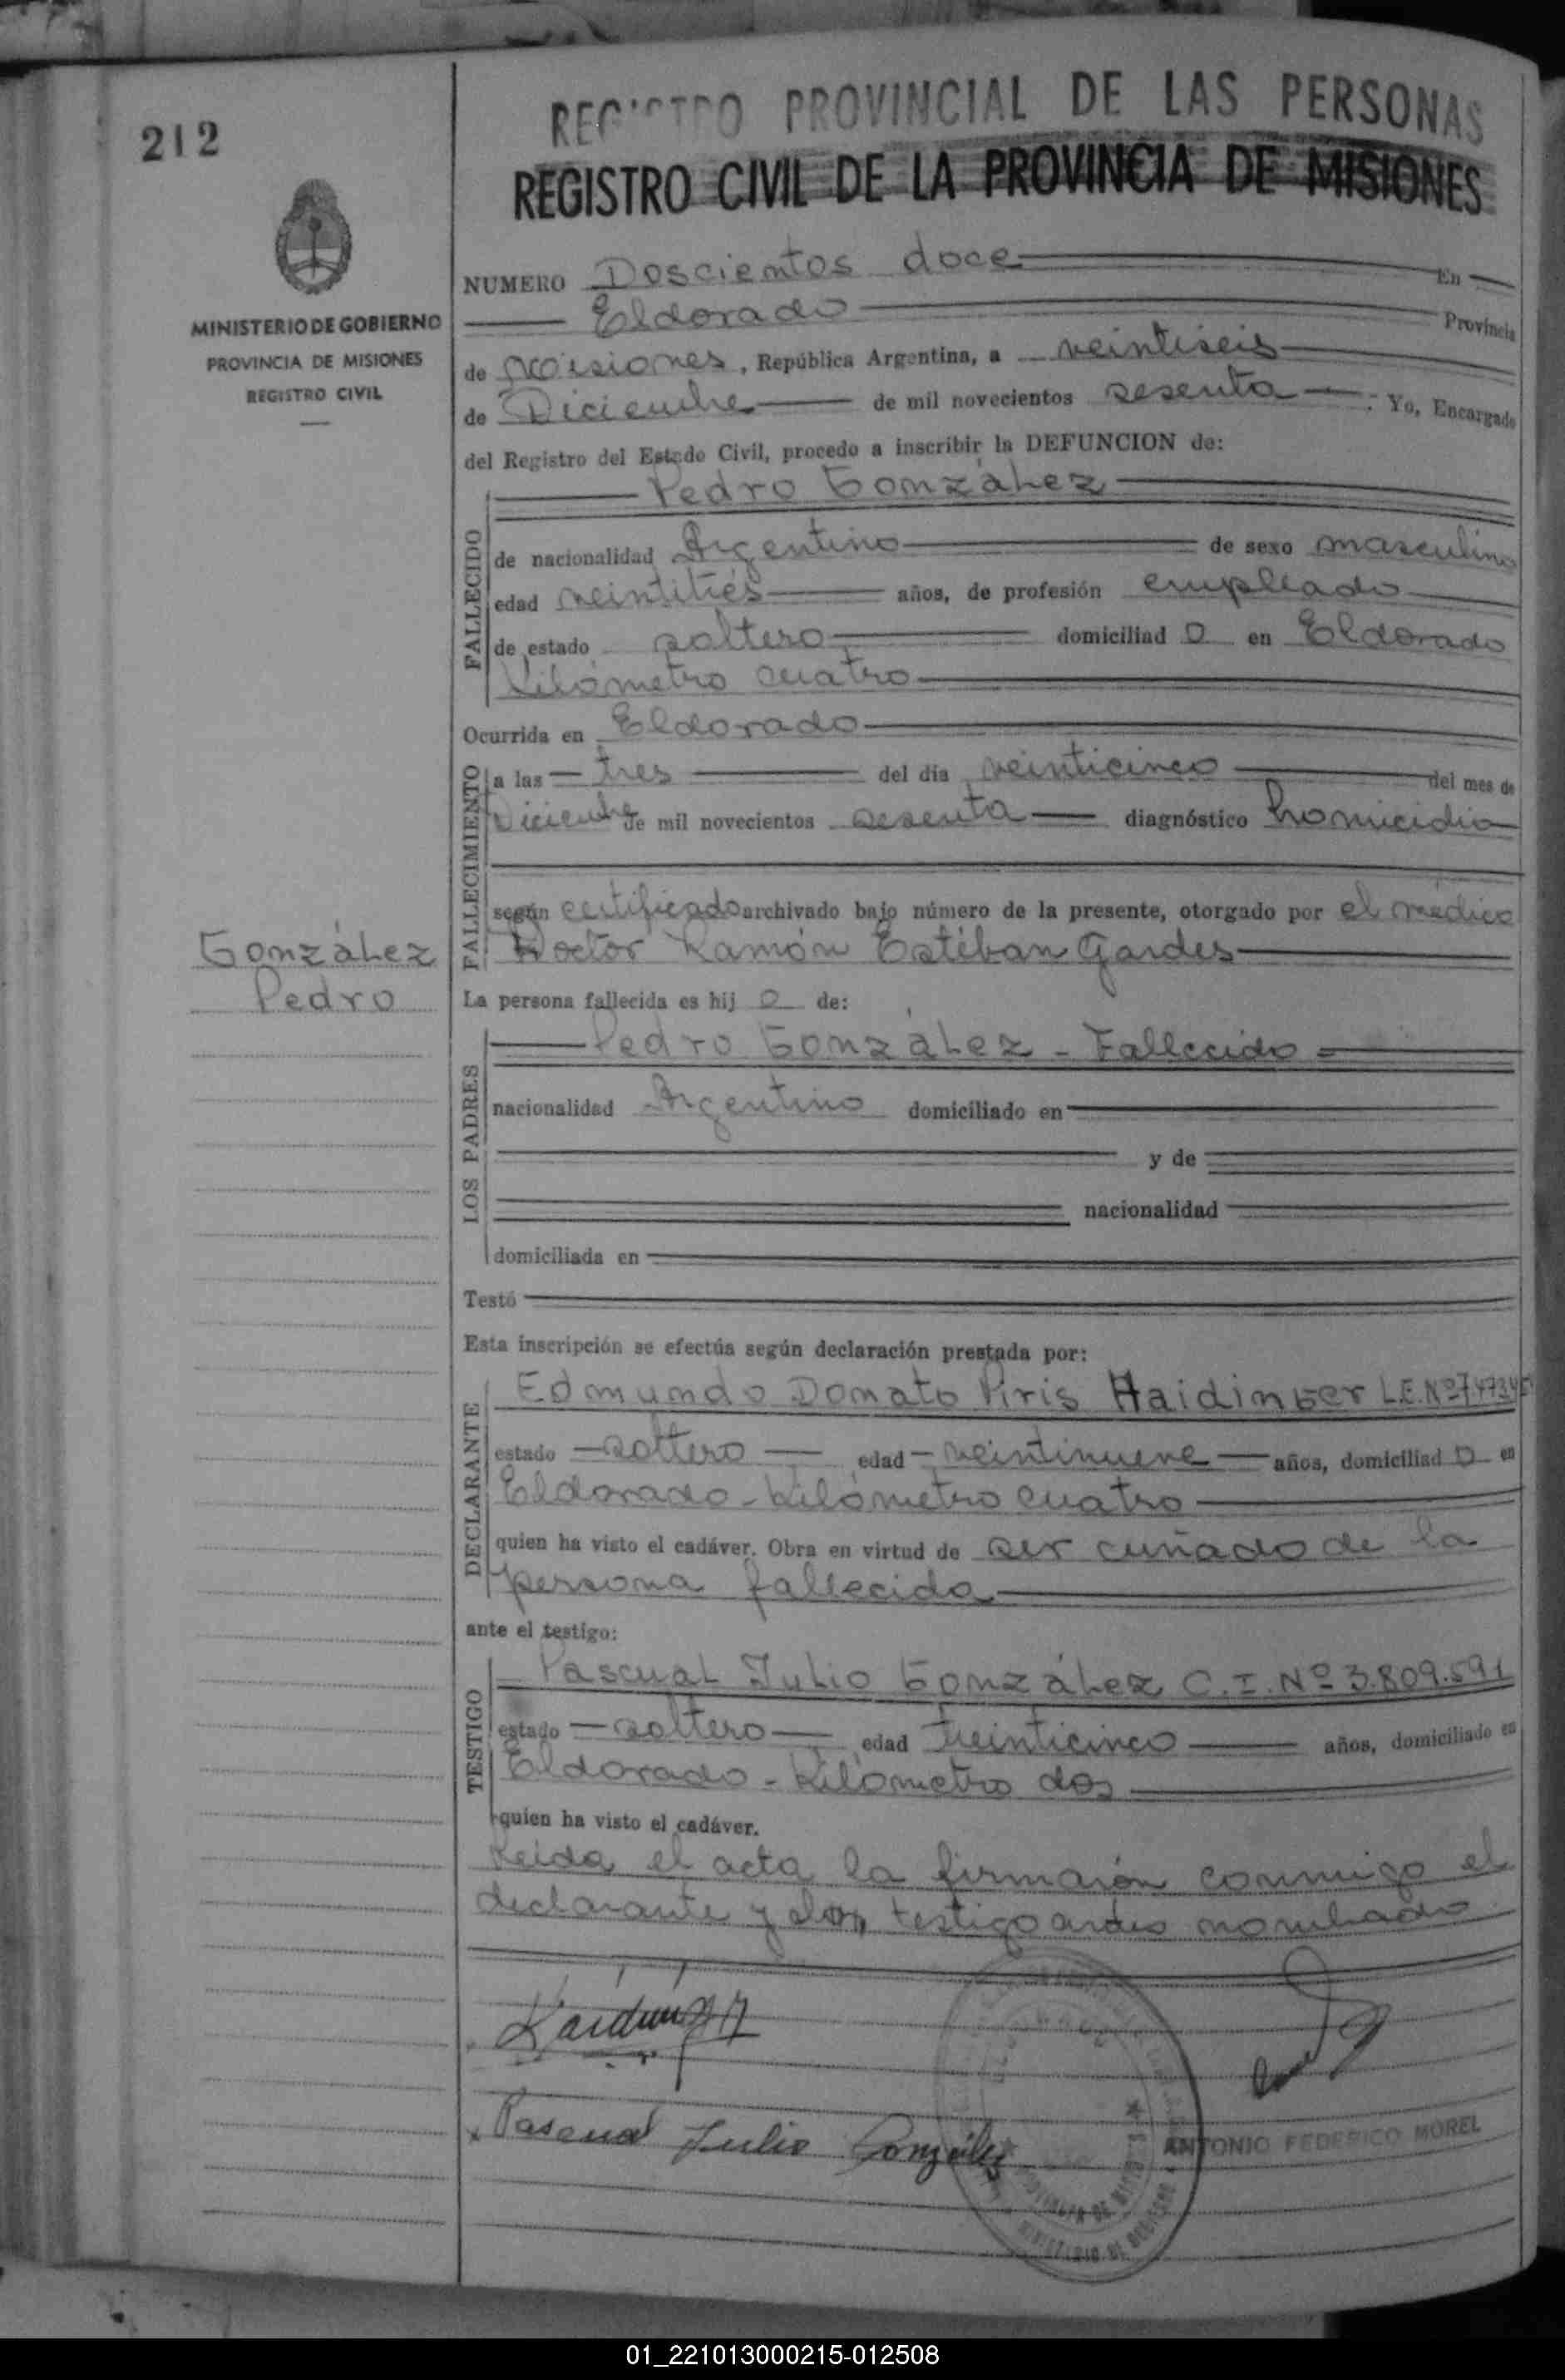 212
MINISTERIO DE GOBIERNO
PROVINCIA DE MISIONES
REGISTRO CIVIL
González
Pedro
REGISTRO PROVINCIAL DE LAS PERSONAS
REGISTRO CIVIL DE LA PROVINCIA DE MISIONES
NUMERO Doscientos doce En
Eldorado Provincia
de Misiones, República Argentina, a veintiseis
de Diciembre de mil novecientos sesenta : Yo, Encargado
del Registro del Estado Civil, procedo a inscribir la DEFUNCION de:
Pedro González
FALLECIDO
de nacionalidad Argentino de sexo masculino
edad veintitrés años, de profesión empleado
de estado soltero domiciliad o en Eldorado
Kilómetro cuatro
Ocurrida en Eldorado
FALLECIMIENTO
a las tres del día veinticinco del mes de
Diciembre de mil novecientos sesenta diagnóstico homicidio
según certificado archivado bajo número de la presente, otorgado por el médico
Doctor Ramón Estéban Gardes
La persona fallecida es hij o de:
LOS PADRES
Pedro González - Fallecido =
nacionalidad Argentino domiciliado en
y de
nacionalidad
domiciliada en
Testó
Esta inscripción se efectúa según declaración prestada por:
DECLARANTE
Edmundo Donato Piris Haidinger L.E. Nº
estado soltero edad veintinueve años, domiciliad o en
Eldorado - Kilómetro cuatro
quien ha visto el cadáver. Obra en virtud de ser cuñado de la
persona fallecida
ante el testigo:
TESTIGO
Pascual Julio González C.I. Nº 3.809.591
estado soltero edad treinticinco años, domiciliado en
Eldorado - Kilómetro dos
quien ha visto el cadáver.
Leida el acta la firmarón conmigo el
declarante y testigo antes nombrado
Haidinger
Pascual Julio González
ANTONIO FEDERICO MOREL
PROVINCIA DE MISIONES
MINISTERIO DE GOBIERNO
01_221013000215-012508